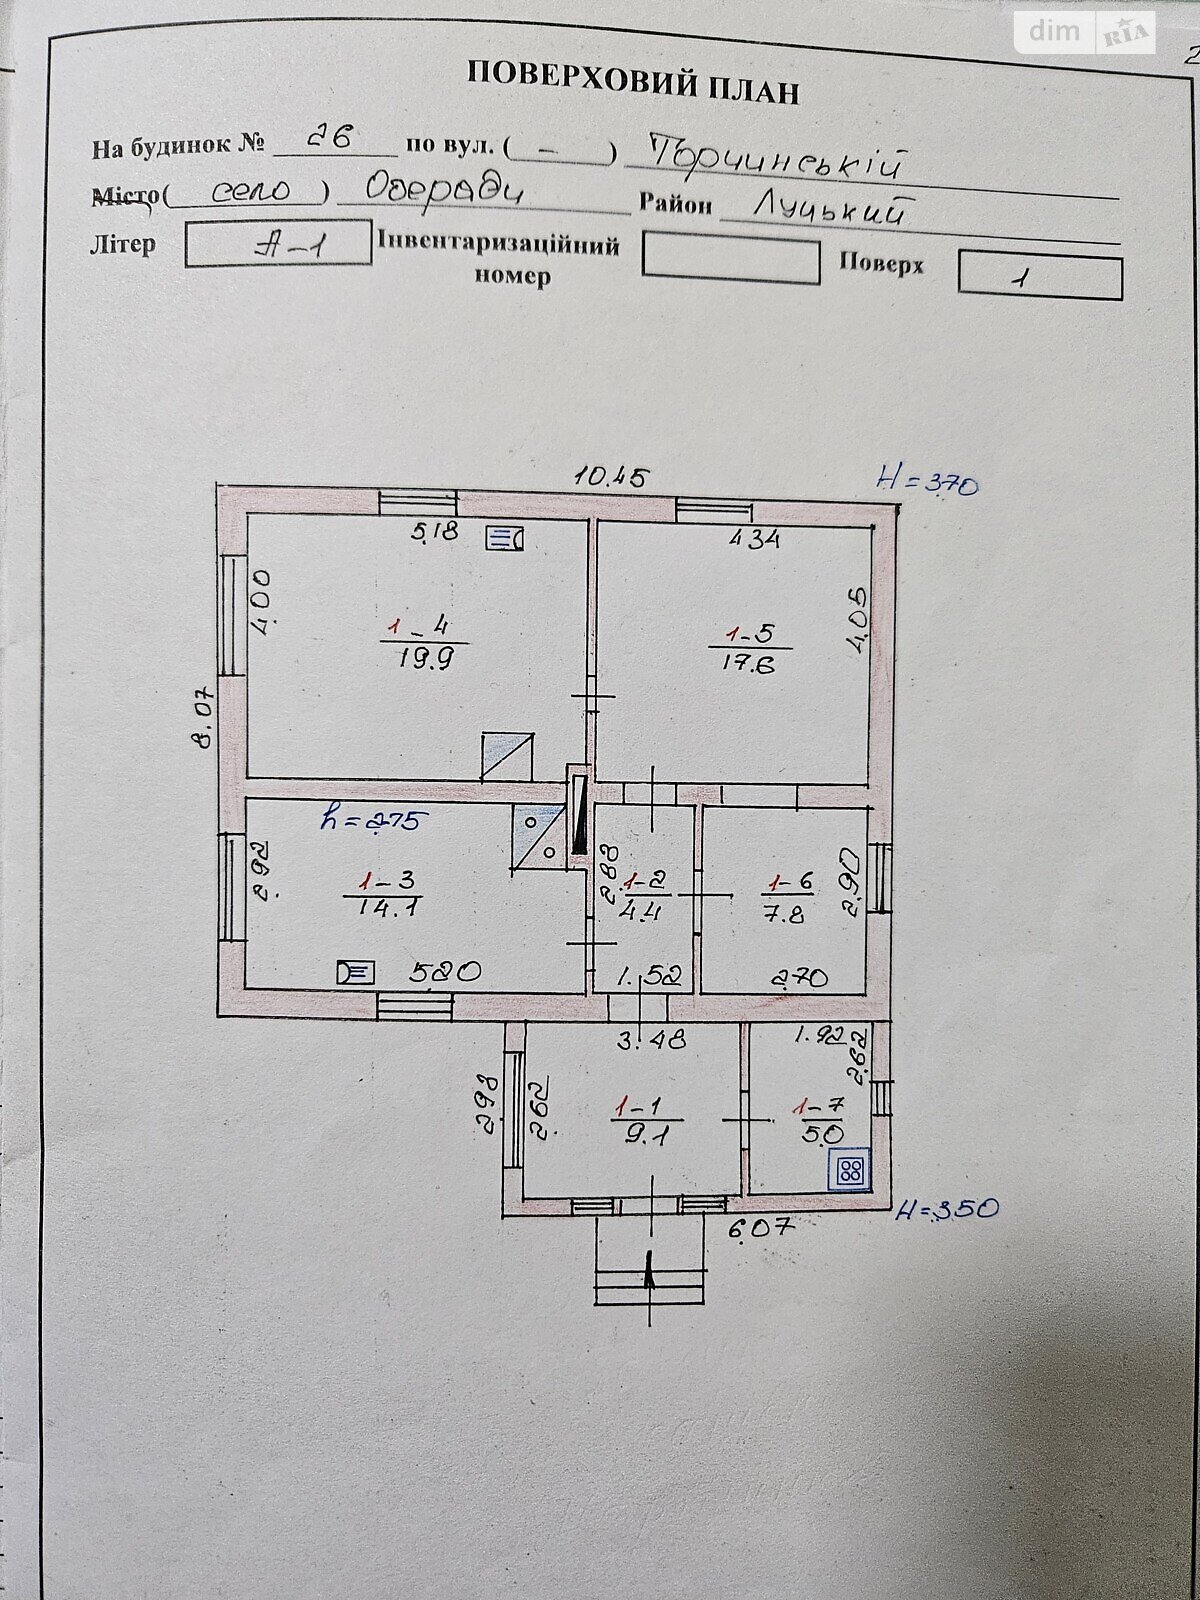 dim RIA
2
ПОВЕРХОВИЙ ПЛАН
На будинок № 26 по вул. ( - ) Торчинській
Місто( село ) Озеряди Район Луцький
Літер А-1 Інвентаризаційний номер Поверх 1
10.45 H=3.70
5.18 4.34
4.00 1-4 19.9 1-5 17.6 4.05
8.07
h=2.75
2.92 1-3 14.1 2.88 1-2 4.4 1-6 7.8 2.90
5.20 1.52 2.70
3.48 1.92 2.62
2.93 2.62 1-1 9.1 1-7 5.0
6.07 H=3.50